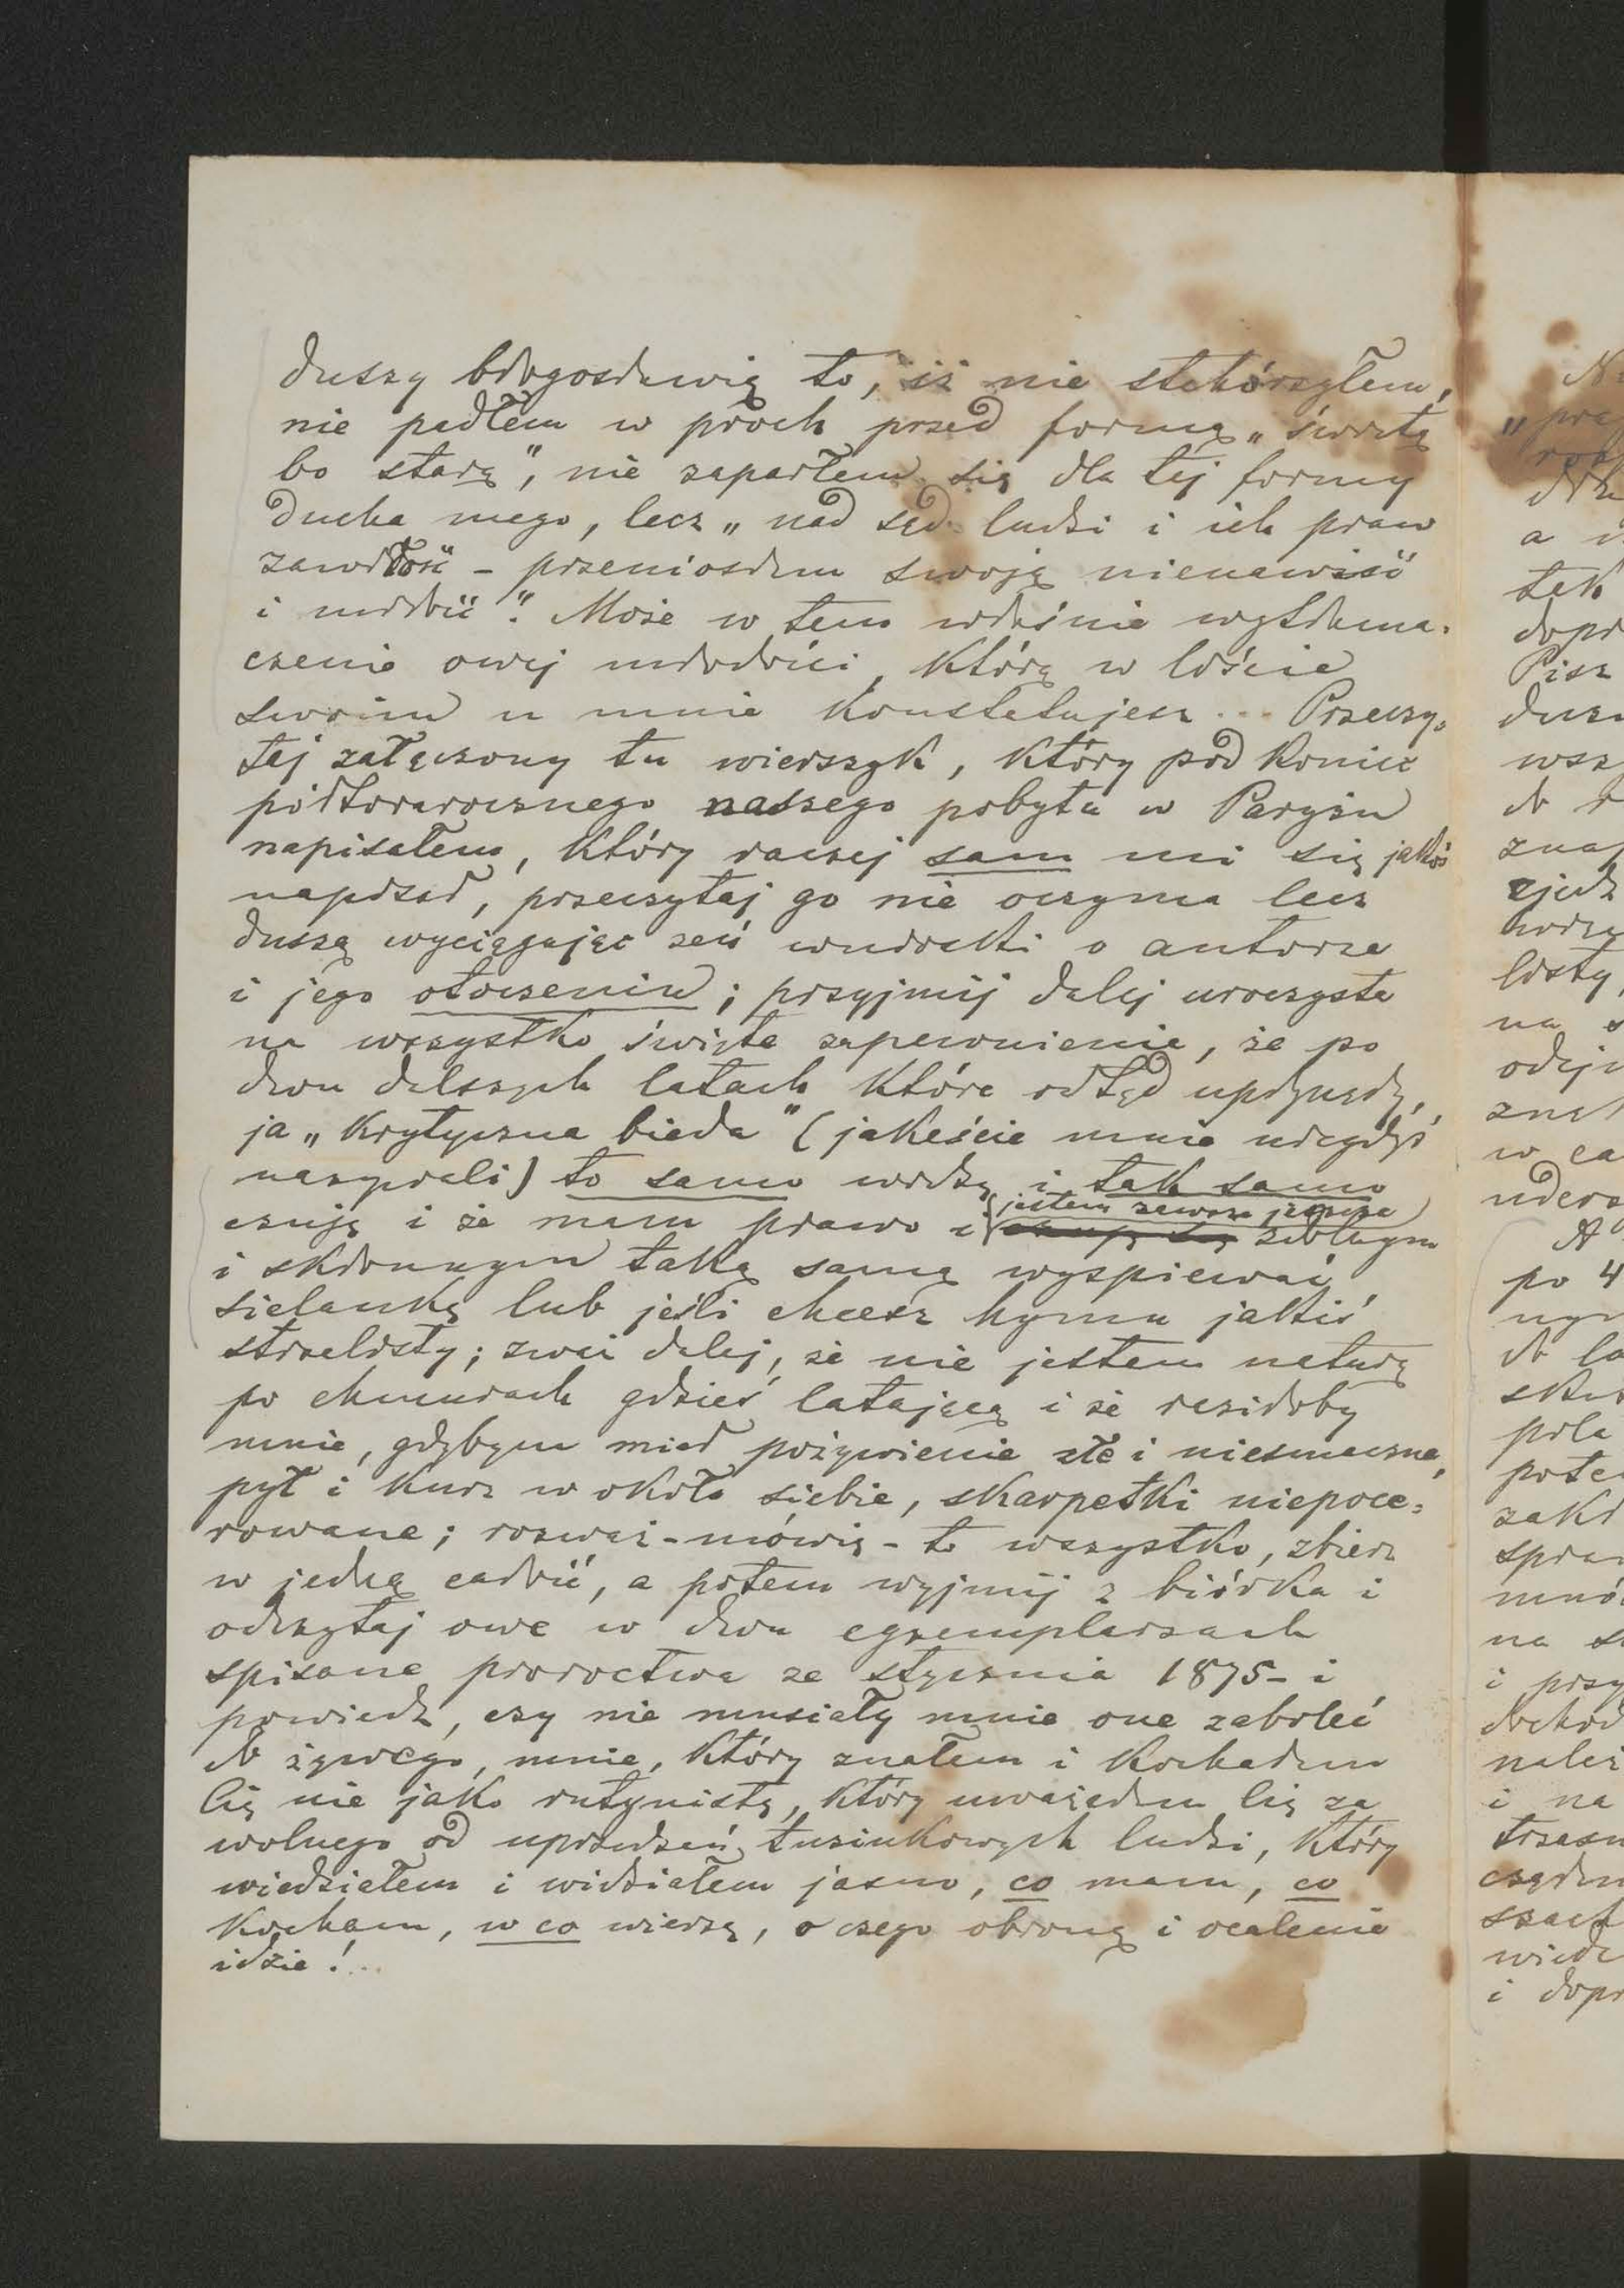 duszy błogosławię to, iż nie stchórzyłem,
nie padłem w proch przed formą „świętą
bo starą", nie zaparłem się dla tej formy
ducha mego, lecz „nad sąd ludzi i ich praw
zawiłość – przeniosłem swoją nienawiść
i miłość". Może w tem właśnie wytłuma-
czenie owej młodości, którą w liście
swoim u mnie konstatujesz... Przeczy-
taj załączony tu wierszyk, który pod koniec
półtorarocznego naszego pobytu w Paryżu
napisałem, który raczej sam mi się jakoś
napisał, przeczytaj go nie oczyma lecz
duszą wyciągając zeń wnioski o autorze
i jego otoczeniu; przyjmij dalej uroczyste
na wszystko święte zapewnienie, że po
dwu dalszych latach które odtąd upłynęły,
ja „krytyczna bieda" (jakeście mnie niegdyś
nazywali) to samo widzę i tak samo
czuję i że mam prawo i jestem zawsze jeszcze zdolnym
i skłonnym taką samą wyśpiewać
sielankę lub jeśli chcesz hymn jakiś
strzelisty; zważ dalej, że nie jestem naturą
po chmurach gdzieś latającą i że raziłoby
mnie, gdybym miał pożywienie złe i niesmaczne,
pył i kurz w około siebie, skarpetki niepoce-
rowane; rozważ – mówię – to wszystko, zbierz
w jedną całość, a potem wyjmij z biórka i
odczytaj owe w dwu egzemplarzach
spisane proroctwa ze stycznia 1875 – i
powiedz, czy nie musiały mnie one zaboleć
do żywego, mnie, który znałem i kochałem
Cię nie jako rutynistę, który uważałem Cię za
wolnego od uprzedzeń tuzinkowych ludzi, który
wiedziałem i widziałem jasno, co mam, co
kocham, w co wierzę, o czego obronę i ocalenie
idzie!..